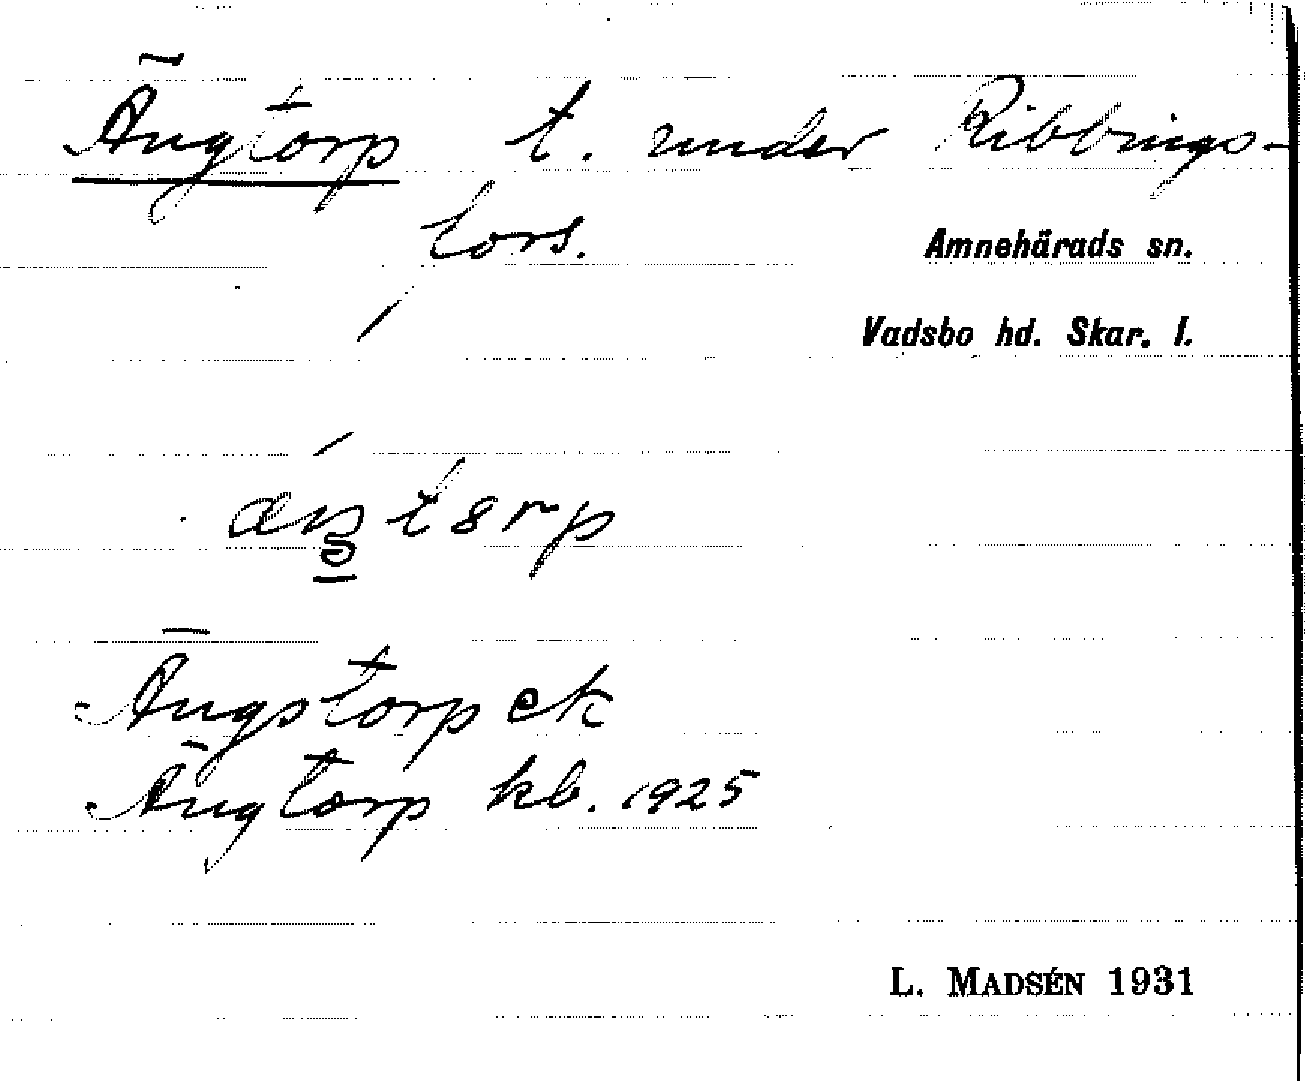 Ängtorp t. under Ribbings-
tors.
Amnehärads sn.
Vadsbo hd. Skar. l.
Ängstorp ek
Ängtorp kb. 1925
L. MADSÉN 1931